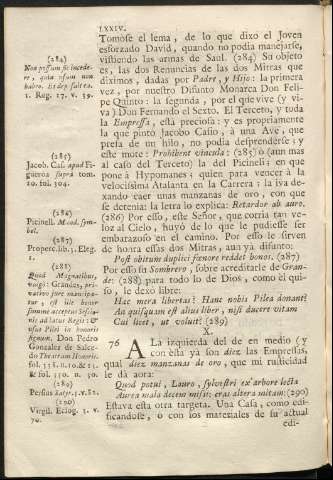 LXXIV.
Tomose el lema, de lo que dixo el Joven
esforzado David, quando no podia manejarse,
vistiendo las armas de Saul. (284) Su objeto
es, las dos Renuncias de las dos Mitras que
diximos, dadas por Padre, y Hijo: la primera
vez, por nuestro Difunto Monarca Don Feli-
pe Quinto: la segunda, por el que vive (y vi-
va) Don Fernando el Sexto. El Terceto, y toda
la Empressa, está preciosa: y es propriamente
la que pintó Jacobo Casio, à una Ave, que
presa de un hilo, no podia desprenderse; y
este mote: Prohibent vincula: (285) ò (aun mas
al caso del Terceto) la del Picineli: en que
pone à Hypomanes; quien para vencér à la
velocissima Atalanta en la Carrera: la iva de-
xando caer unas manzanas de oro, con que
se detenia: la letra lo explica: Retardor ab auro.
(286) Por esso, este Señor, que corria tan ve-
loz al Cielo, huyó de lo que le pudiesse ser
embarazo en el camino. Por esso le sirven
de honra essas dos Mitras; aun yà difunto:
Post obitum duplici fœnore reddet bonos. (287)
Por esso sin Sombrero, sobre acreditarle de Gran-
de: (288) para todo lo de Dios, como él qui-
so, le dexo libre:
Hæc mera libertas? Hanc nobis Pilea donant?
An quisquam est alius liber, nisi ducere vitam
Cui licet, ut voluit? (289)
X.
76 A La izquierda del de en medio (y
con esta yà son diez las Empressas,
qual diez manzanas de oro, que mi rusticidad
le dá aora:
Quod potui, Lauro, sylvestri ex arbore lecta
Aurea mala decem misi: cras altera mittam: (290)
Estava esta otra targeta. Una Casa, como edi-
ficandose, ò con los materiales de su actual
edi-
(284)
Non possum sic incede-
re, quia usum non
habeo. Et deposuit ea.
1. Reg. 17. v. 39.
(285)
Jacob. Cas. apud Fi-
gueroa supra tom.
20. fol. 104.
(286)
Picinell. Mund. sym-
bol.
(287)
Properc. lib. 3. Eleg.
1.
(288)
Quod Magnatibus,
vulgò: Grandes, pri-
vativo jure mancipa-
tur, est ille honor
summè acceptus
ad latus Regis: &
usus Pilei in honoris
signum. Don Pedro
Gonzalez de Salce-
do Theatrum Honoris.
(289)
Persius Satyr. 5. v. 82.
(290)
Virgil. Eclog. 3. v.
70.